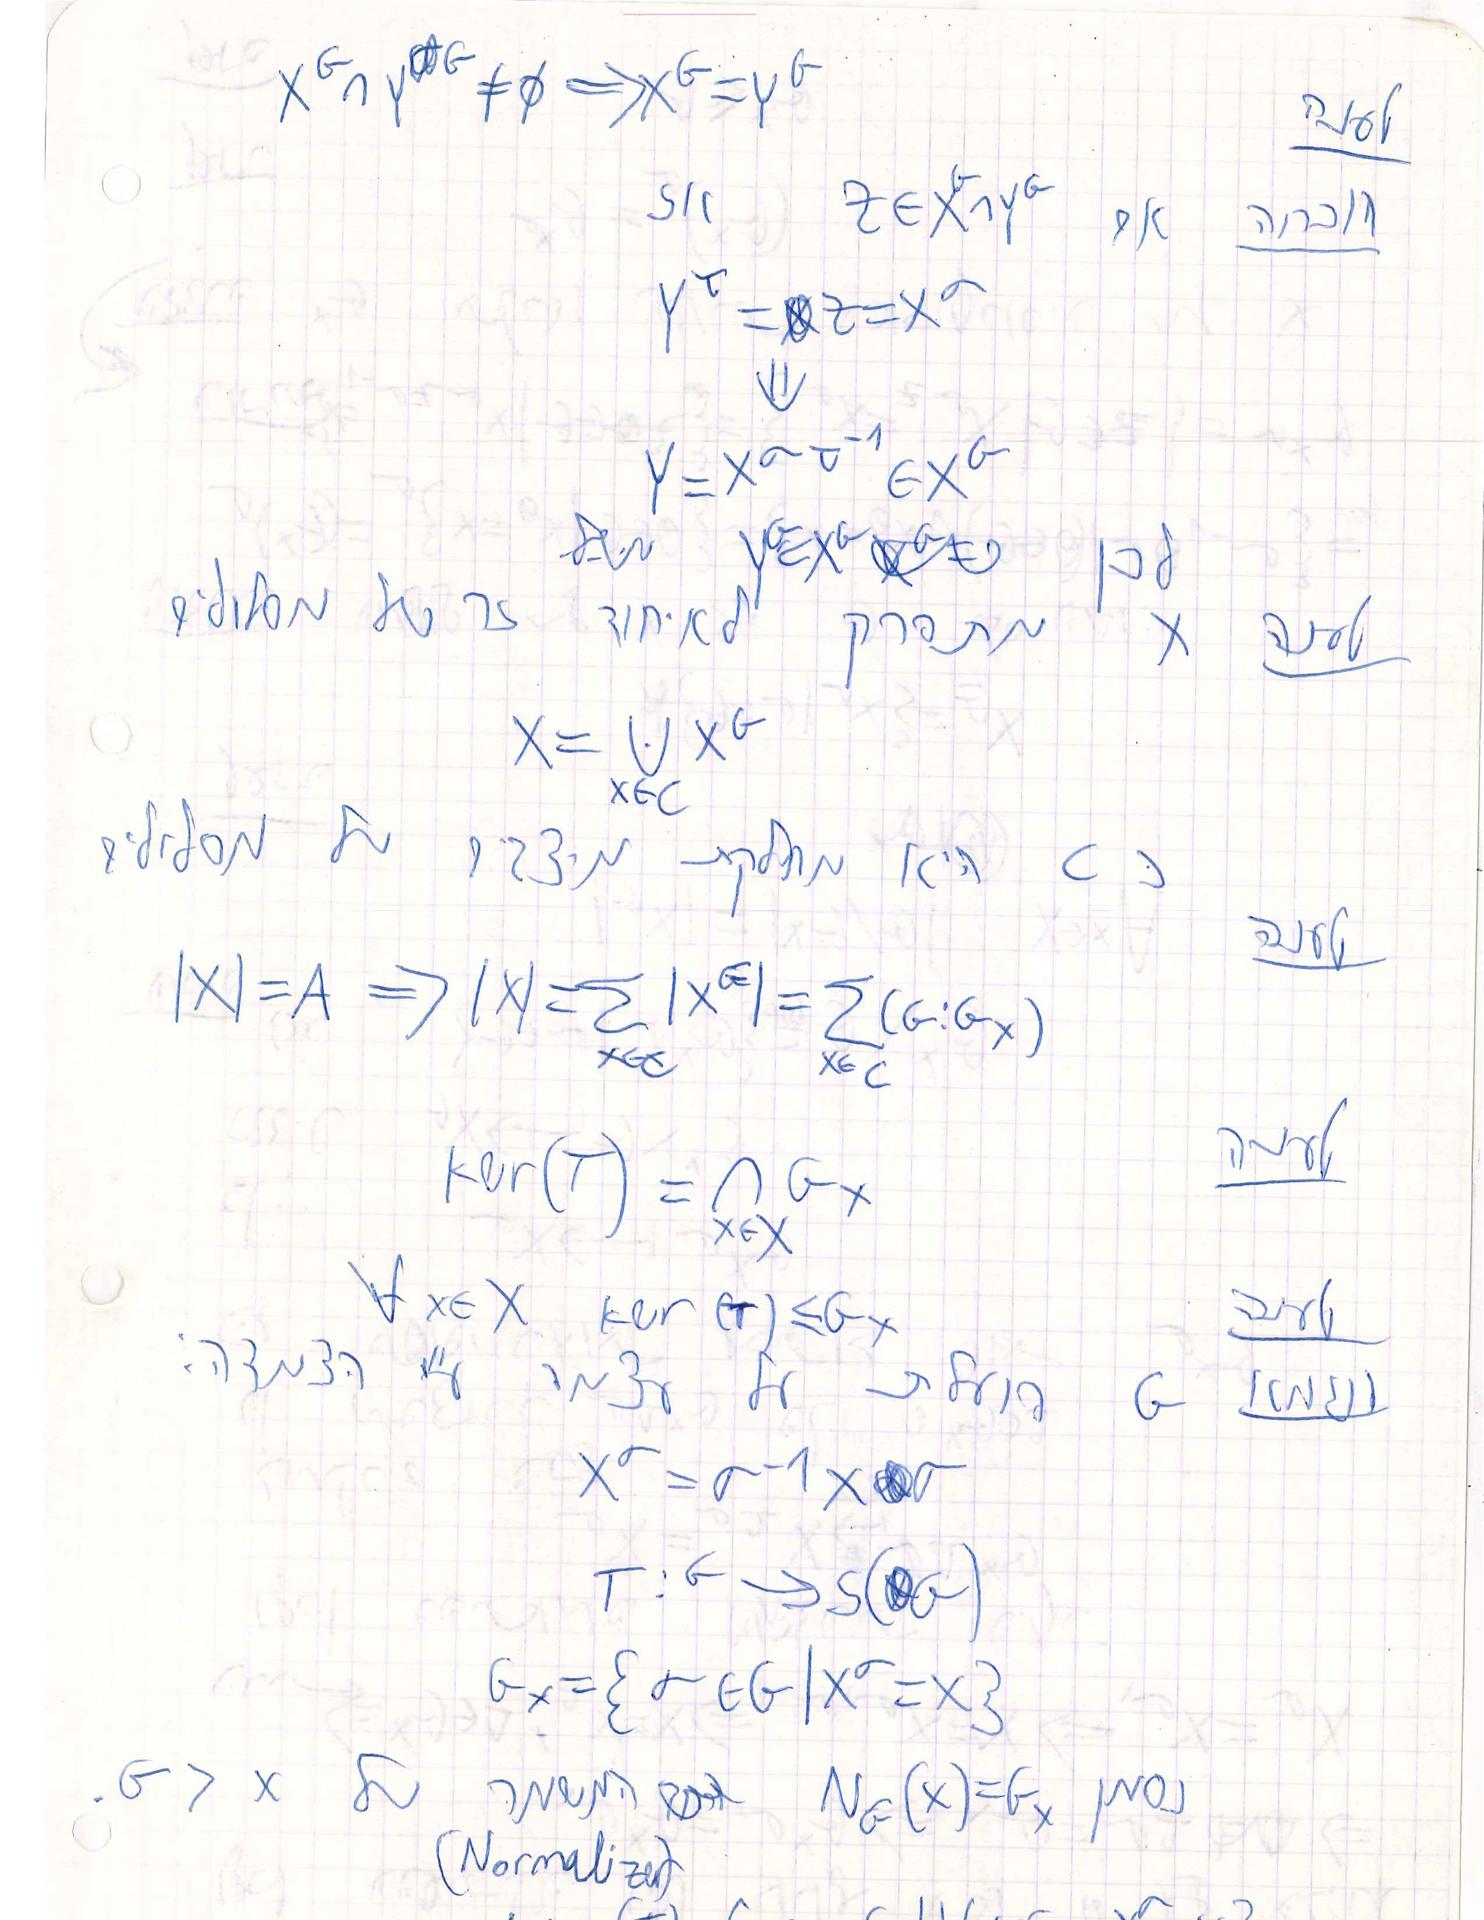 טענה X^G ∩ Y^G ≠ ∅ ⟹ X^G = Y^G
הוכחה אם Z ∈ X^G ∩ Y^G אז
Y^τ = Z = X^σ
⇓
Y = X^{στ^{-1}} ∈ X^G
לכן Y^G = X^G משל
טענה X מתפרק לאיחוד זר של מסלולים
X = ⋃_{x∈C} X^G
כש C היא מחלקת מיצגים של מסלולים
טענה
|X| = A ⟹ |X| = Σ_{x∈C} |X^G| = Σ_{x∈C} (G:G_x)
טענה
ker(T) = ⋂_{x∈X} G_x
טענה ∀ x∈X ker(T) ≤ G_x
דוגמא G פועלת על עצמה ע"י הצמדה:
X^σ = σ^{-1} X σ
T : G → S(G)
G_x = {σ ∈ G | X^σ = X}
נסמן N_G(x) = G_x המשמר של x ב G.
(Normalizer)